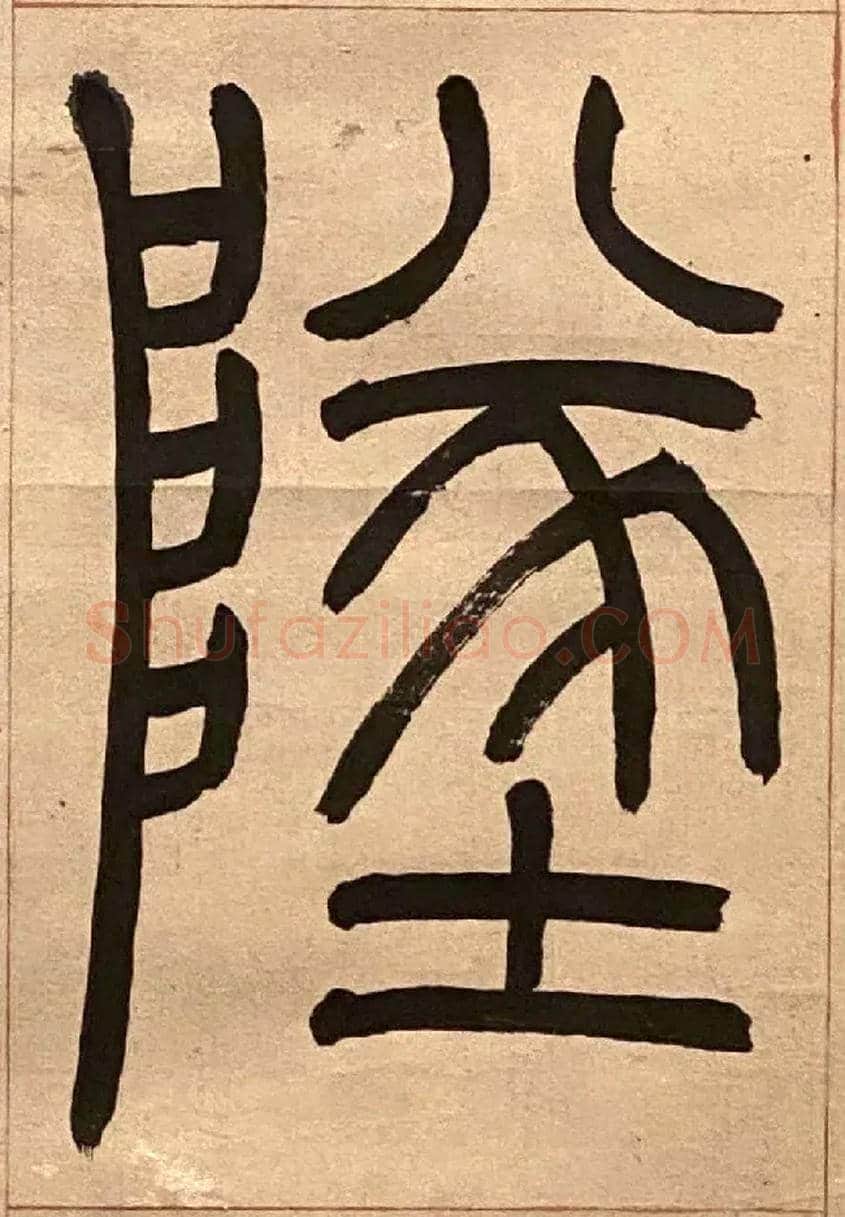 墜
Shufaziliao.COM